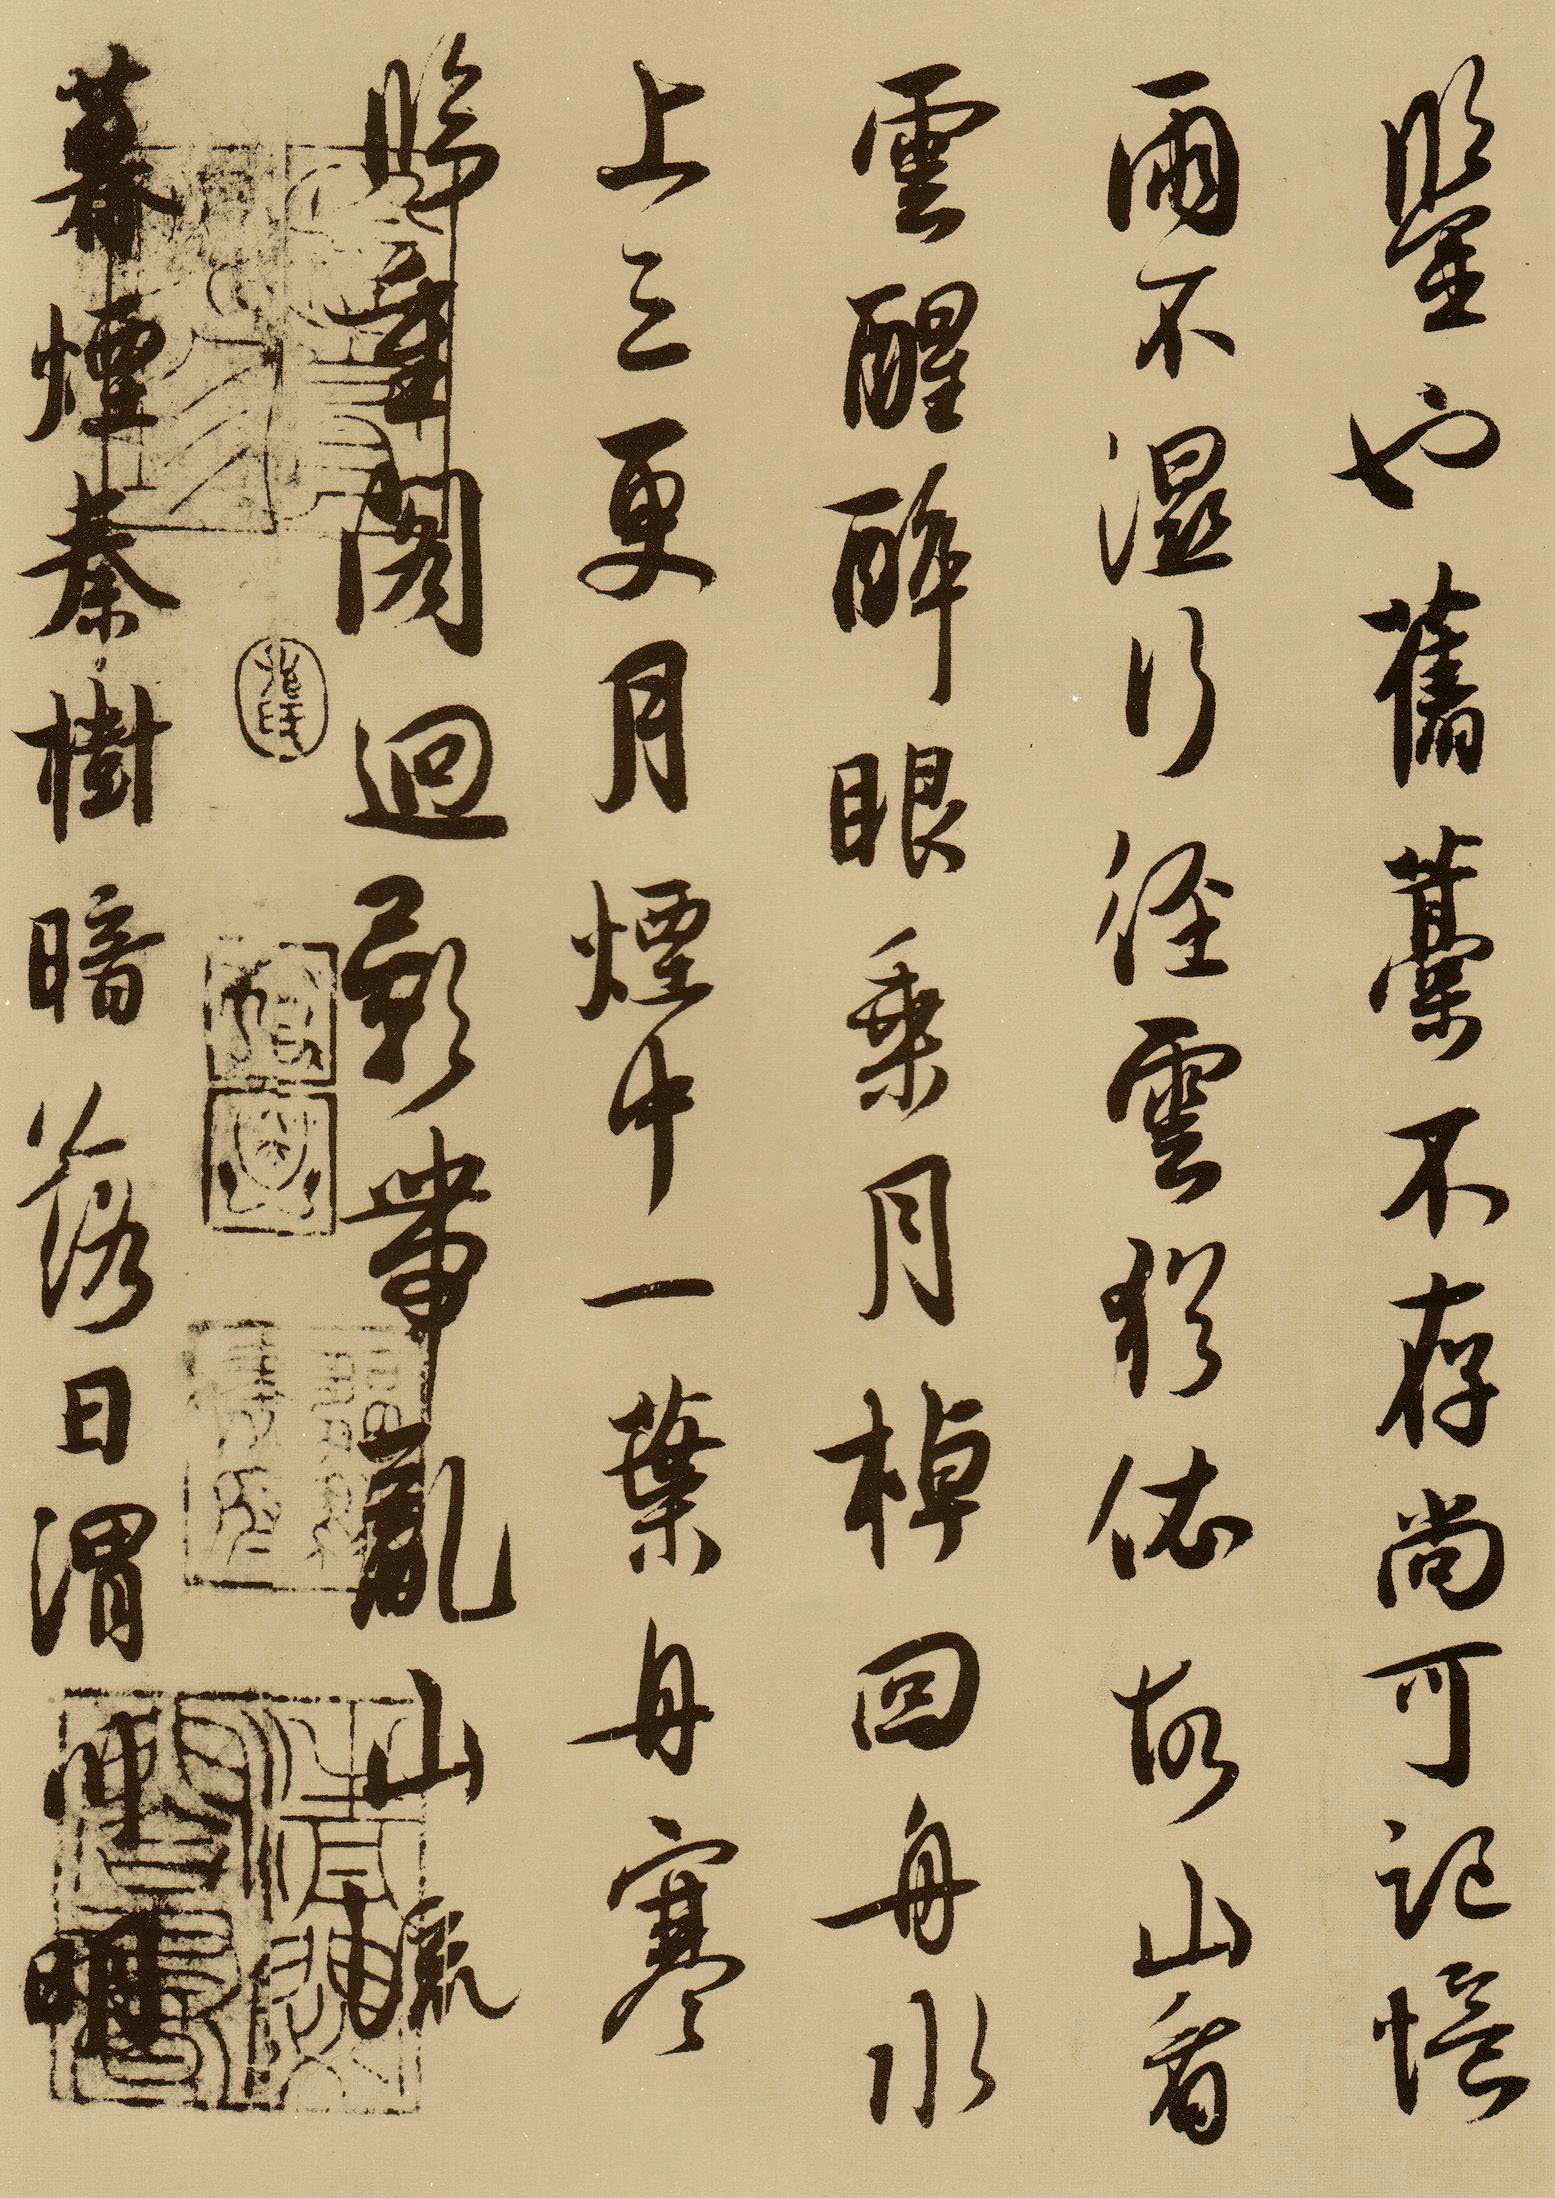 鑒也舊藁不存尚可記憶
雨不濕行徑雲猶依故山看
雲醒醉眼乘月棹回舟水
上三更月煙中一葉舟寒
歸臺閣迥影帶亂山疏
暮煙秦樹暗落日渭川明